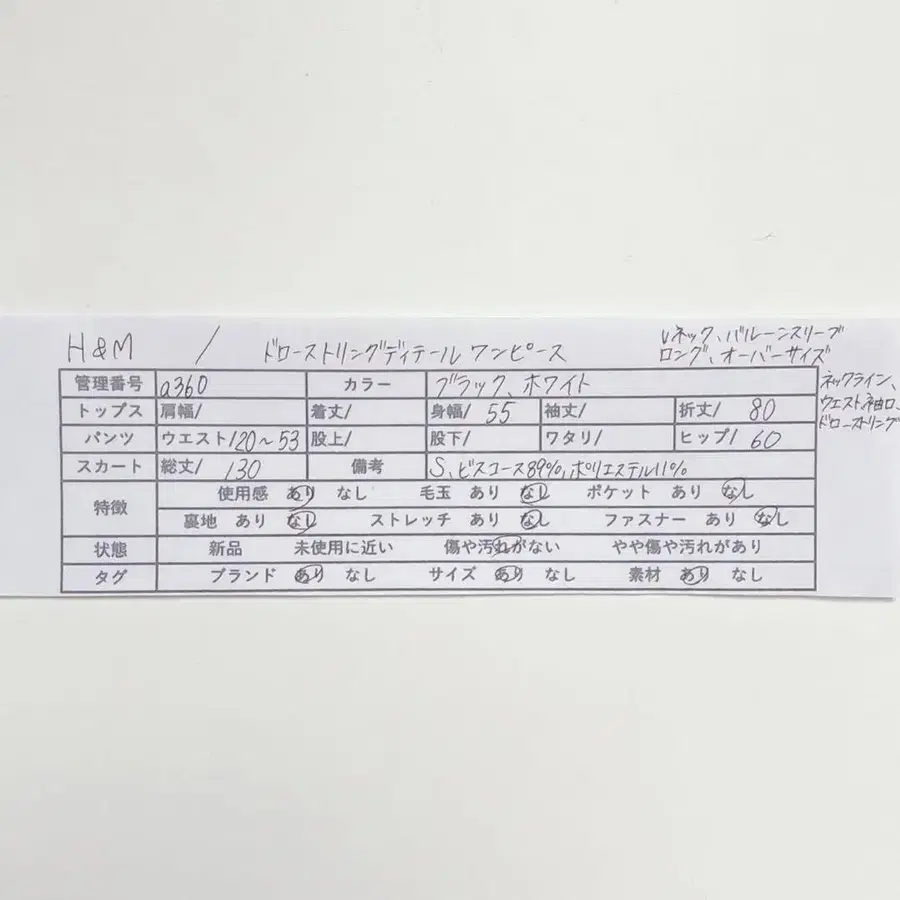 H&M / ドローストリングディテール ワンピース
Vネック、バルーンスリーブ
ロング、オーバーサイズ
ネックライン、
ウエスト袖口、
ドローストリング
管理番号 a360 カラー ブラック、ホワイト
トップス 肩幅/ 着丈/ 身幅/ 55 袖丈/ 裄丈/ 80
パンツ ウエスト/20~53 股上/ 股下/ ワタリ/ ヒップ/ 60
スカート 総丈/ 130 備考 S、ビスコース89%、ポリエステル11%
特徴 使用感 あり なし 毛玉 あり なし ポケット あり なし
裏地 あり なし ストレッチ あり なし ファスナー あり なし
状態 新品 未使用に近い 傷や汚れがない やや傷や汚れがあり
タグ ブランド あり なし サイズ あり なし 素材 あり なし